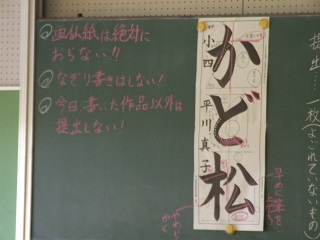 画仙紙は絶対に
おらない!!
なぞり書きはしない!
今日、書いた作品以外は
提出しない!
かど松
小四 平川真子
提出…一枚(よごれていないもの)
早めに筆を